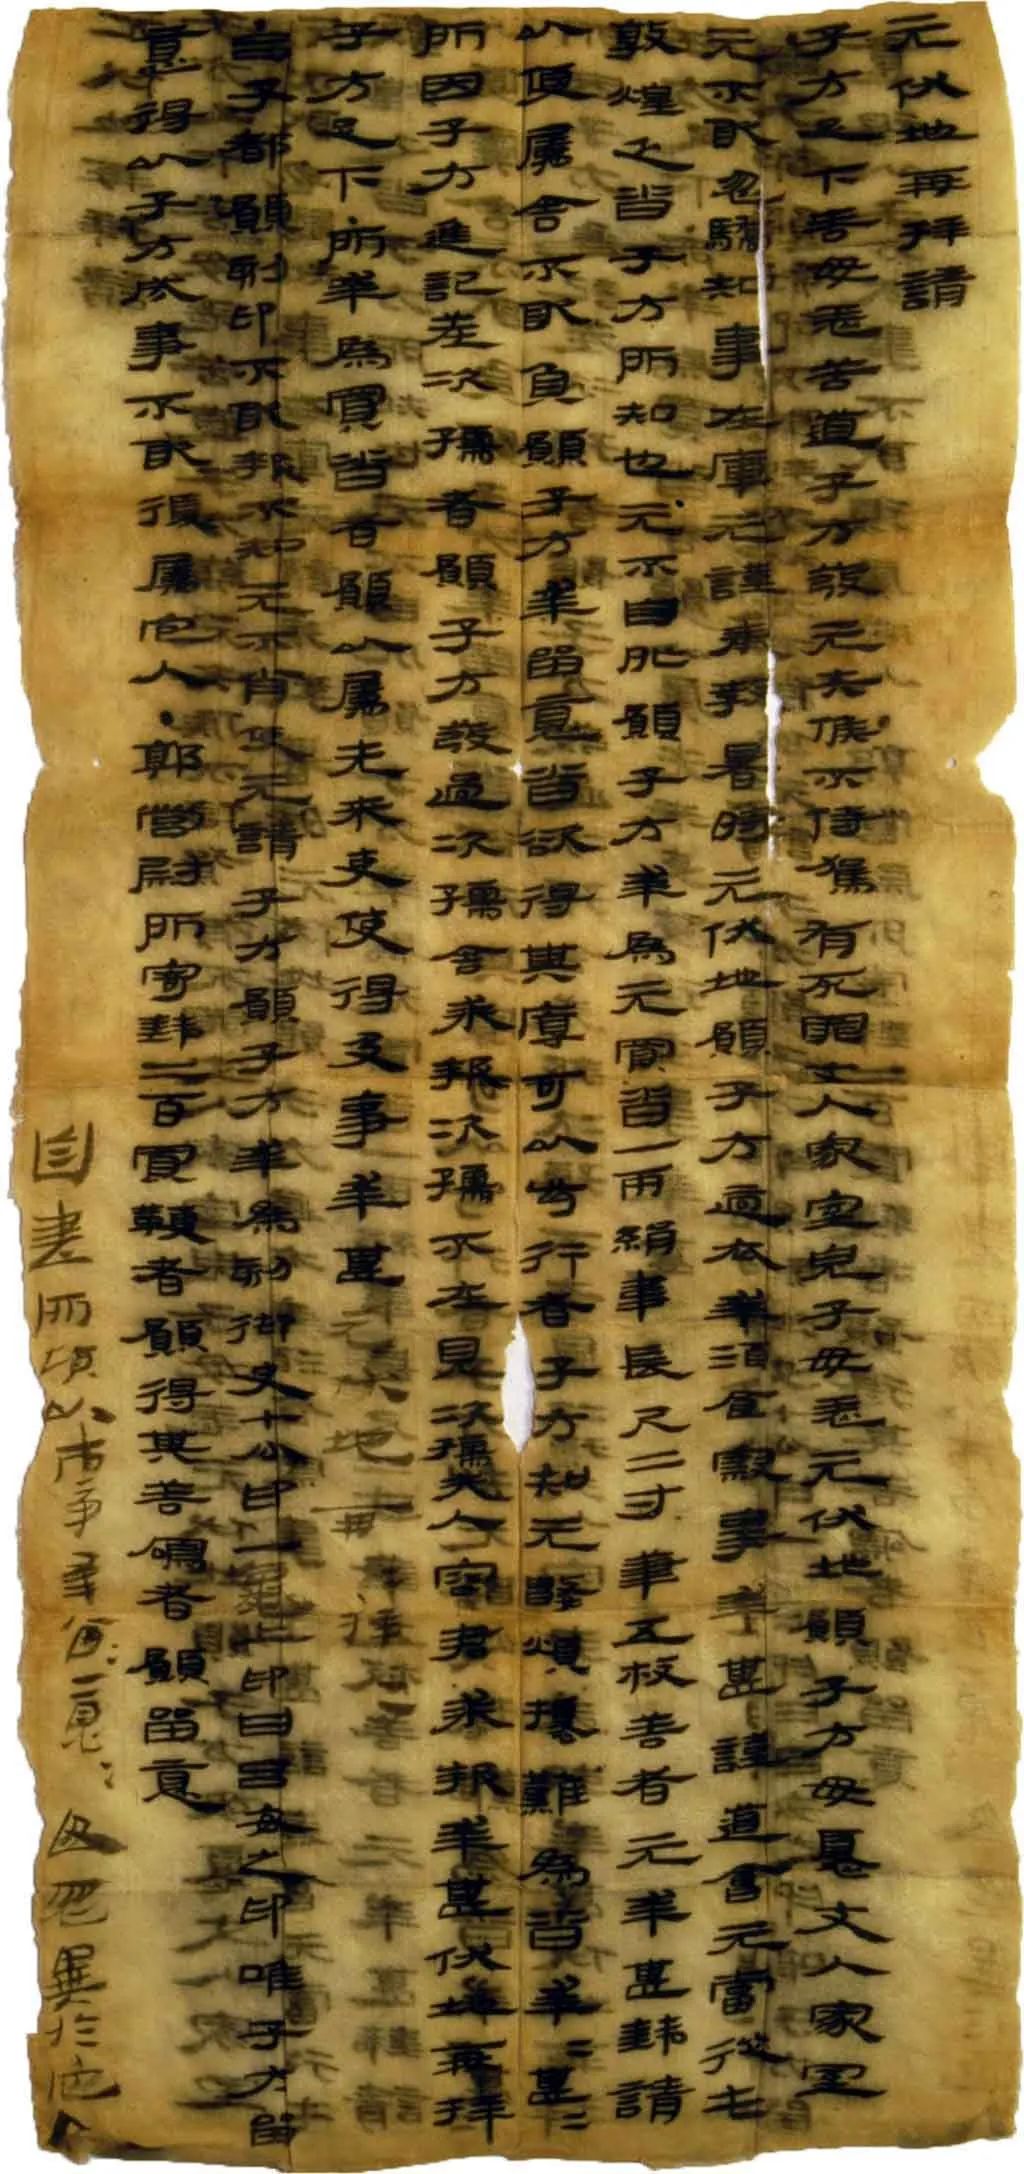 元伏地再拜請
子方足下善毋恙苦道子方發元失候不侍駕有死罪丈人家室兒子毋恙元伏地願子方毋憂丈人家室
元不敢忽驕知事在庫元謹奉教暑時元伏地願子方適衣幸酒食察事幸甚謹道會元當從屯
敦煌乏沓子方所知也元不自外願子方幸爲元買沓一兩絹韋長尺二寸筆五枚善者元幸甚錢請
以便屬舍不敢負願子方幸留意沓欲得其厚可以步行者子方知元數煩擾難爲沓幸=甚=
所因子方進記差次孺者願子方發過次孺舍求報次孺不在見次孺夫人容君求報幸甚伏地再拜
子方足下·所幸爲買沓者願以屬先來吏使得及事幸甚元伏地再拜再拜
呂子都願刻印不敢報不知元不肖使元請子方願子方幸爲刻御史七分印一龜上印曰呂安之印唯子方留
意得以子方成事不敢復屬它人·郭營尉所寄錢二百買鞭者願得其善鳴者願留意
自書所願以市事幸留=意=毋忽異於它人